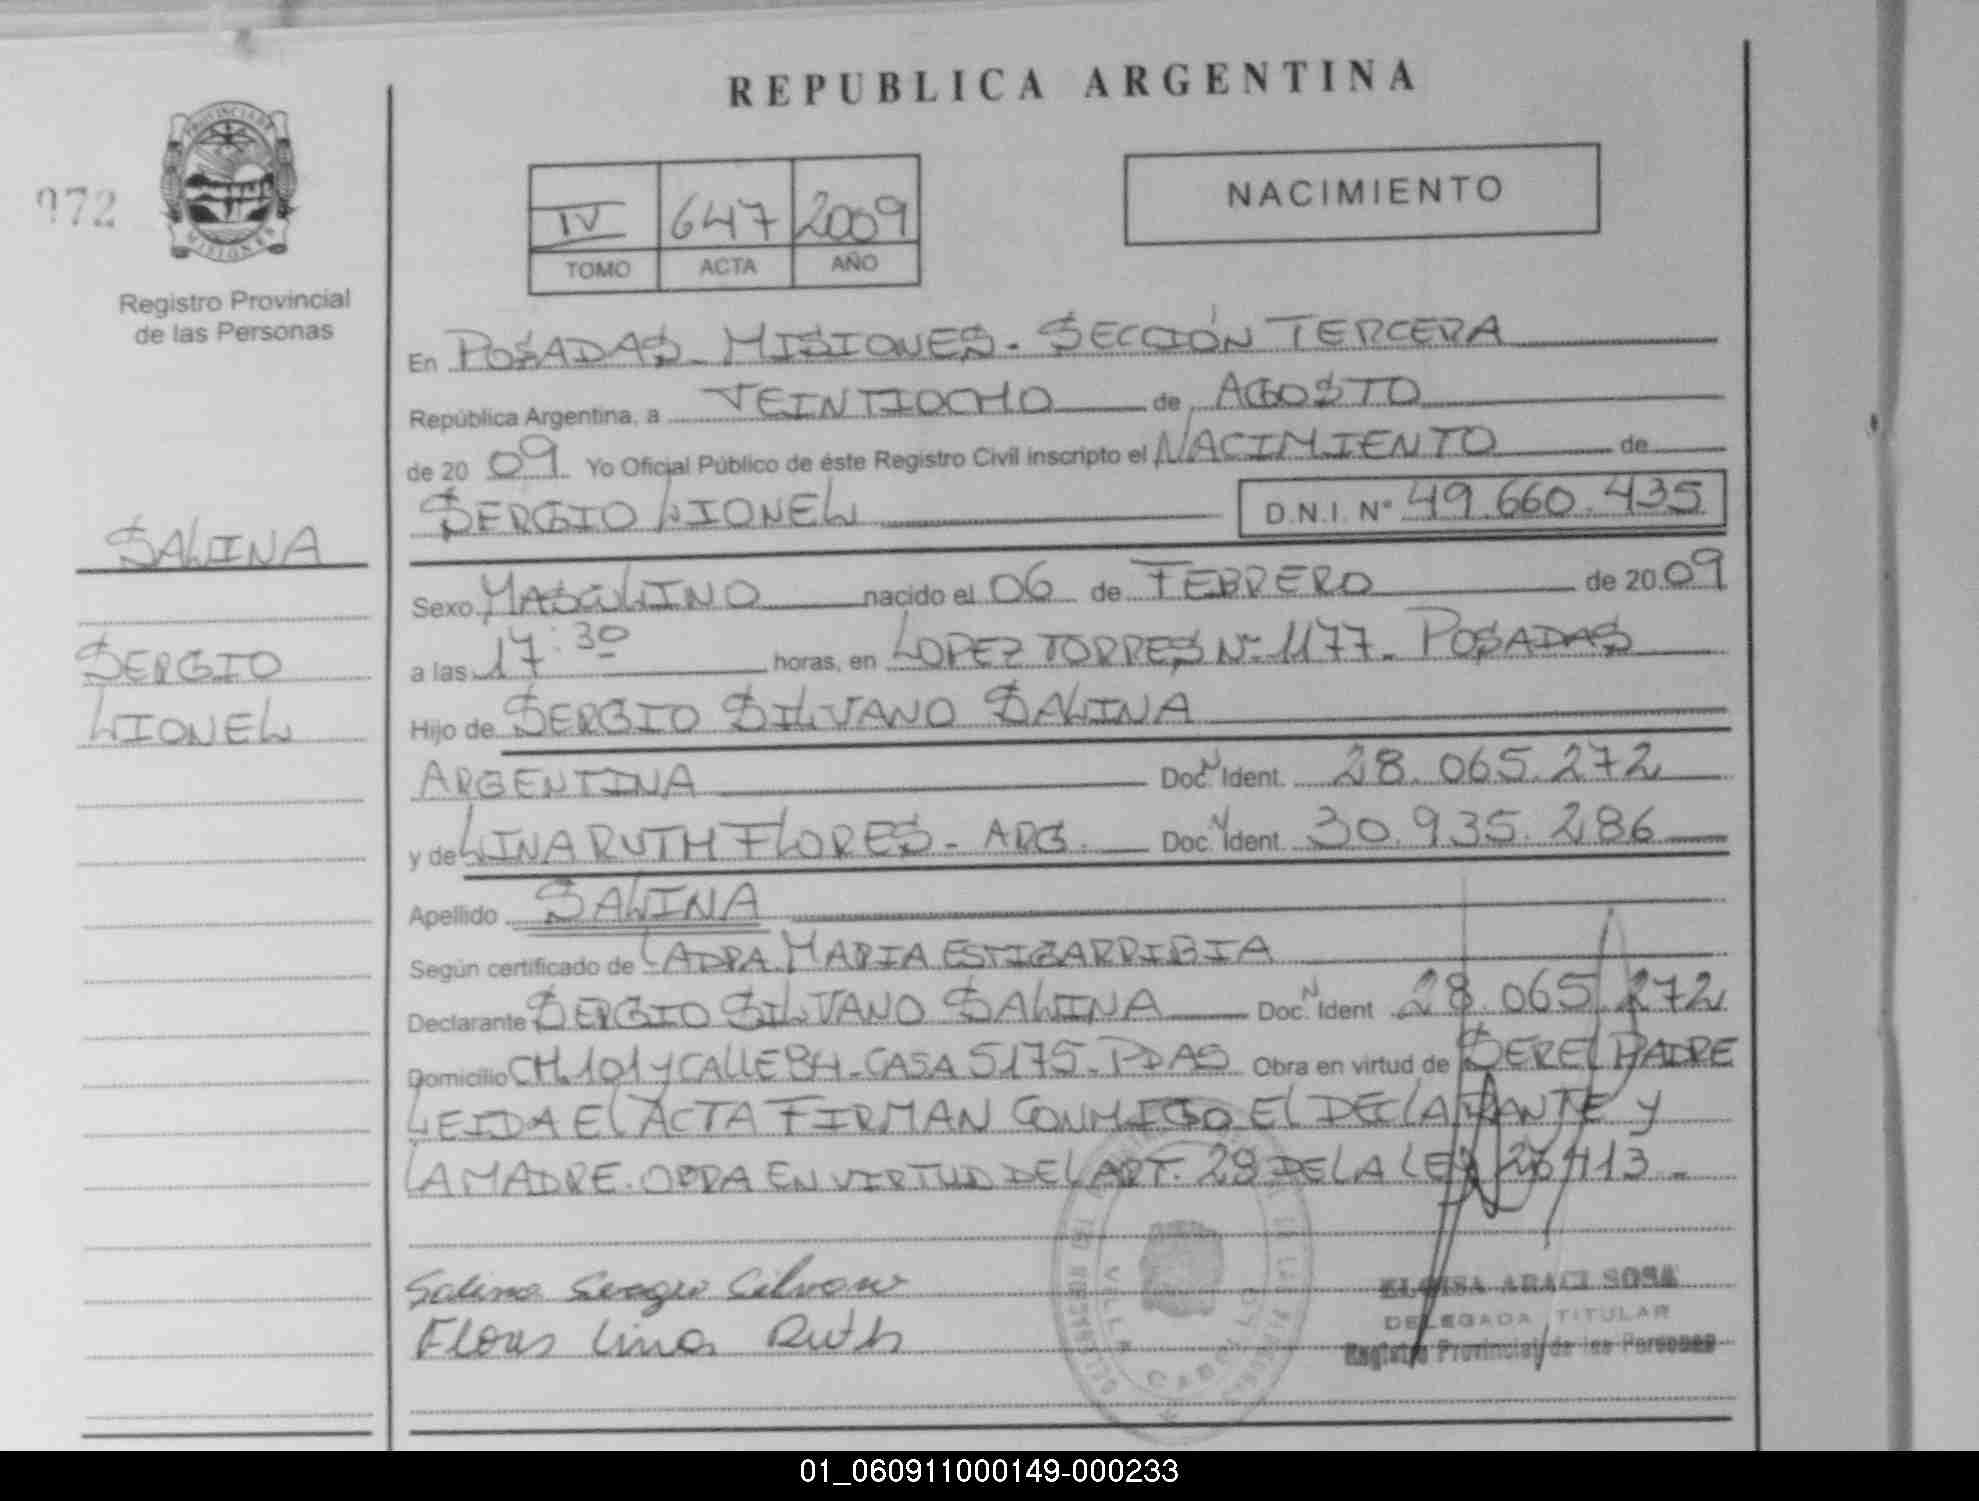 REPUBLICA ARGENTINA
072
PROVINCIA DE
MISIONES
Registro Provincial
de las Personas
IV 647 2009
TOMO ACTA AÑO
NACIMIENTO
En POSADAS - MISIONES - SECCIÓN TERCERA
República Argentina, a VEINTIOCHO de AGOSTO
de 20 09 Yo Oficial Público de éste Registro Civil inscripto el NACIMIENTO de
SERGIO LIONEL D.N.I. Nº 49.660.435
SALINA
SERGIO
LIONEL
Sexo MASCULINO nacido el 06 de FEBRERO de 20 09
a las 17:30 horas, en LOPEZ TORRES Nº 1177 - POSADAS
Hijo de SERGIO SILVANO SALINA
ARGENTINA Doc. N Ident. 28.065.272
y de LINA RUTH FLORES - ARG. Doc. N Ident. 30.935.286
Apellido SALINA
Según certificado de LADRA. MARIA ESTIGARRIBIA
Declarante SERGIO SILVANO SALINA Doc. N Ident 28.065.272
Domicilio CH. 101 y CALLE 84 - CASA 5175 - PDAS Obra en virtud de SER EL PADRE
LEIDA EL ACTA FIRMAN CONMIGO EL DECLARANTE Y
LA MADRE. OBRA EN VIRTUD DEL ART. 28 DE LA LEY 26413 -
Salina Sergio Silvano
Flores Lina Ruth
VILLA CABELLO
ELOISA ARACI SOSA
DELEGADA TITULAR
Registro Provincial de las Personas
01_060911000149-000233